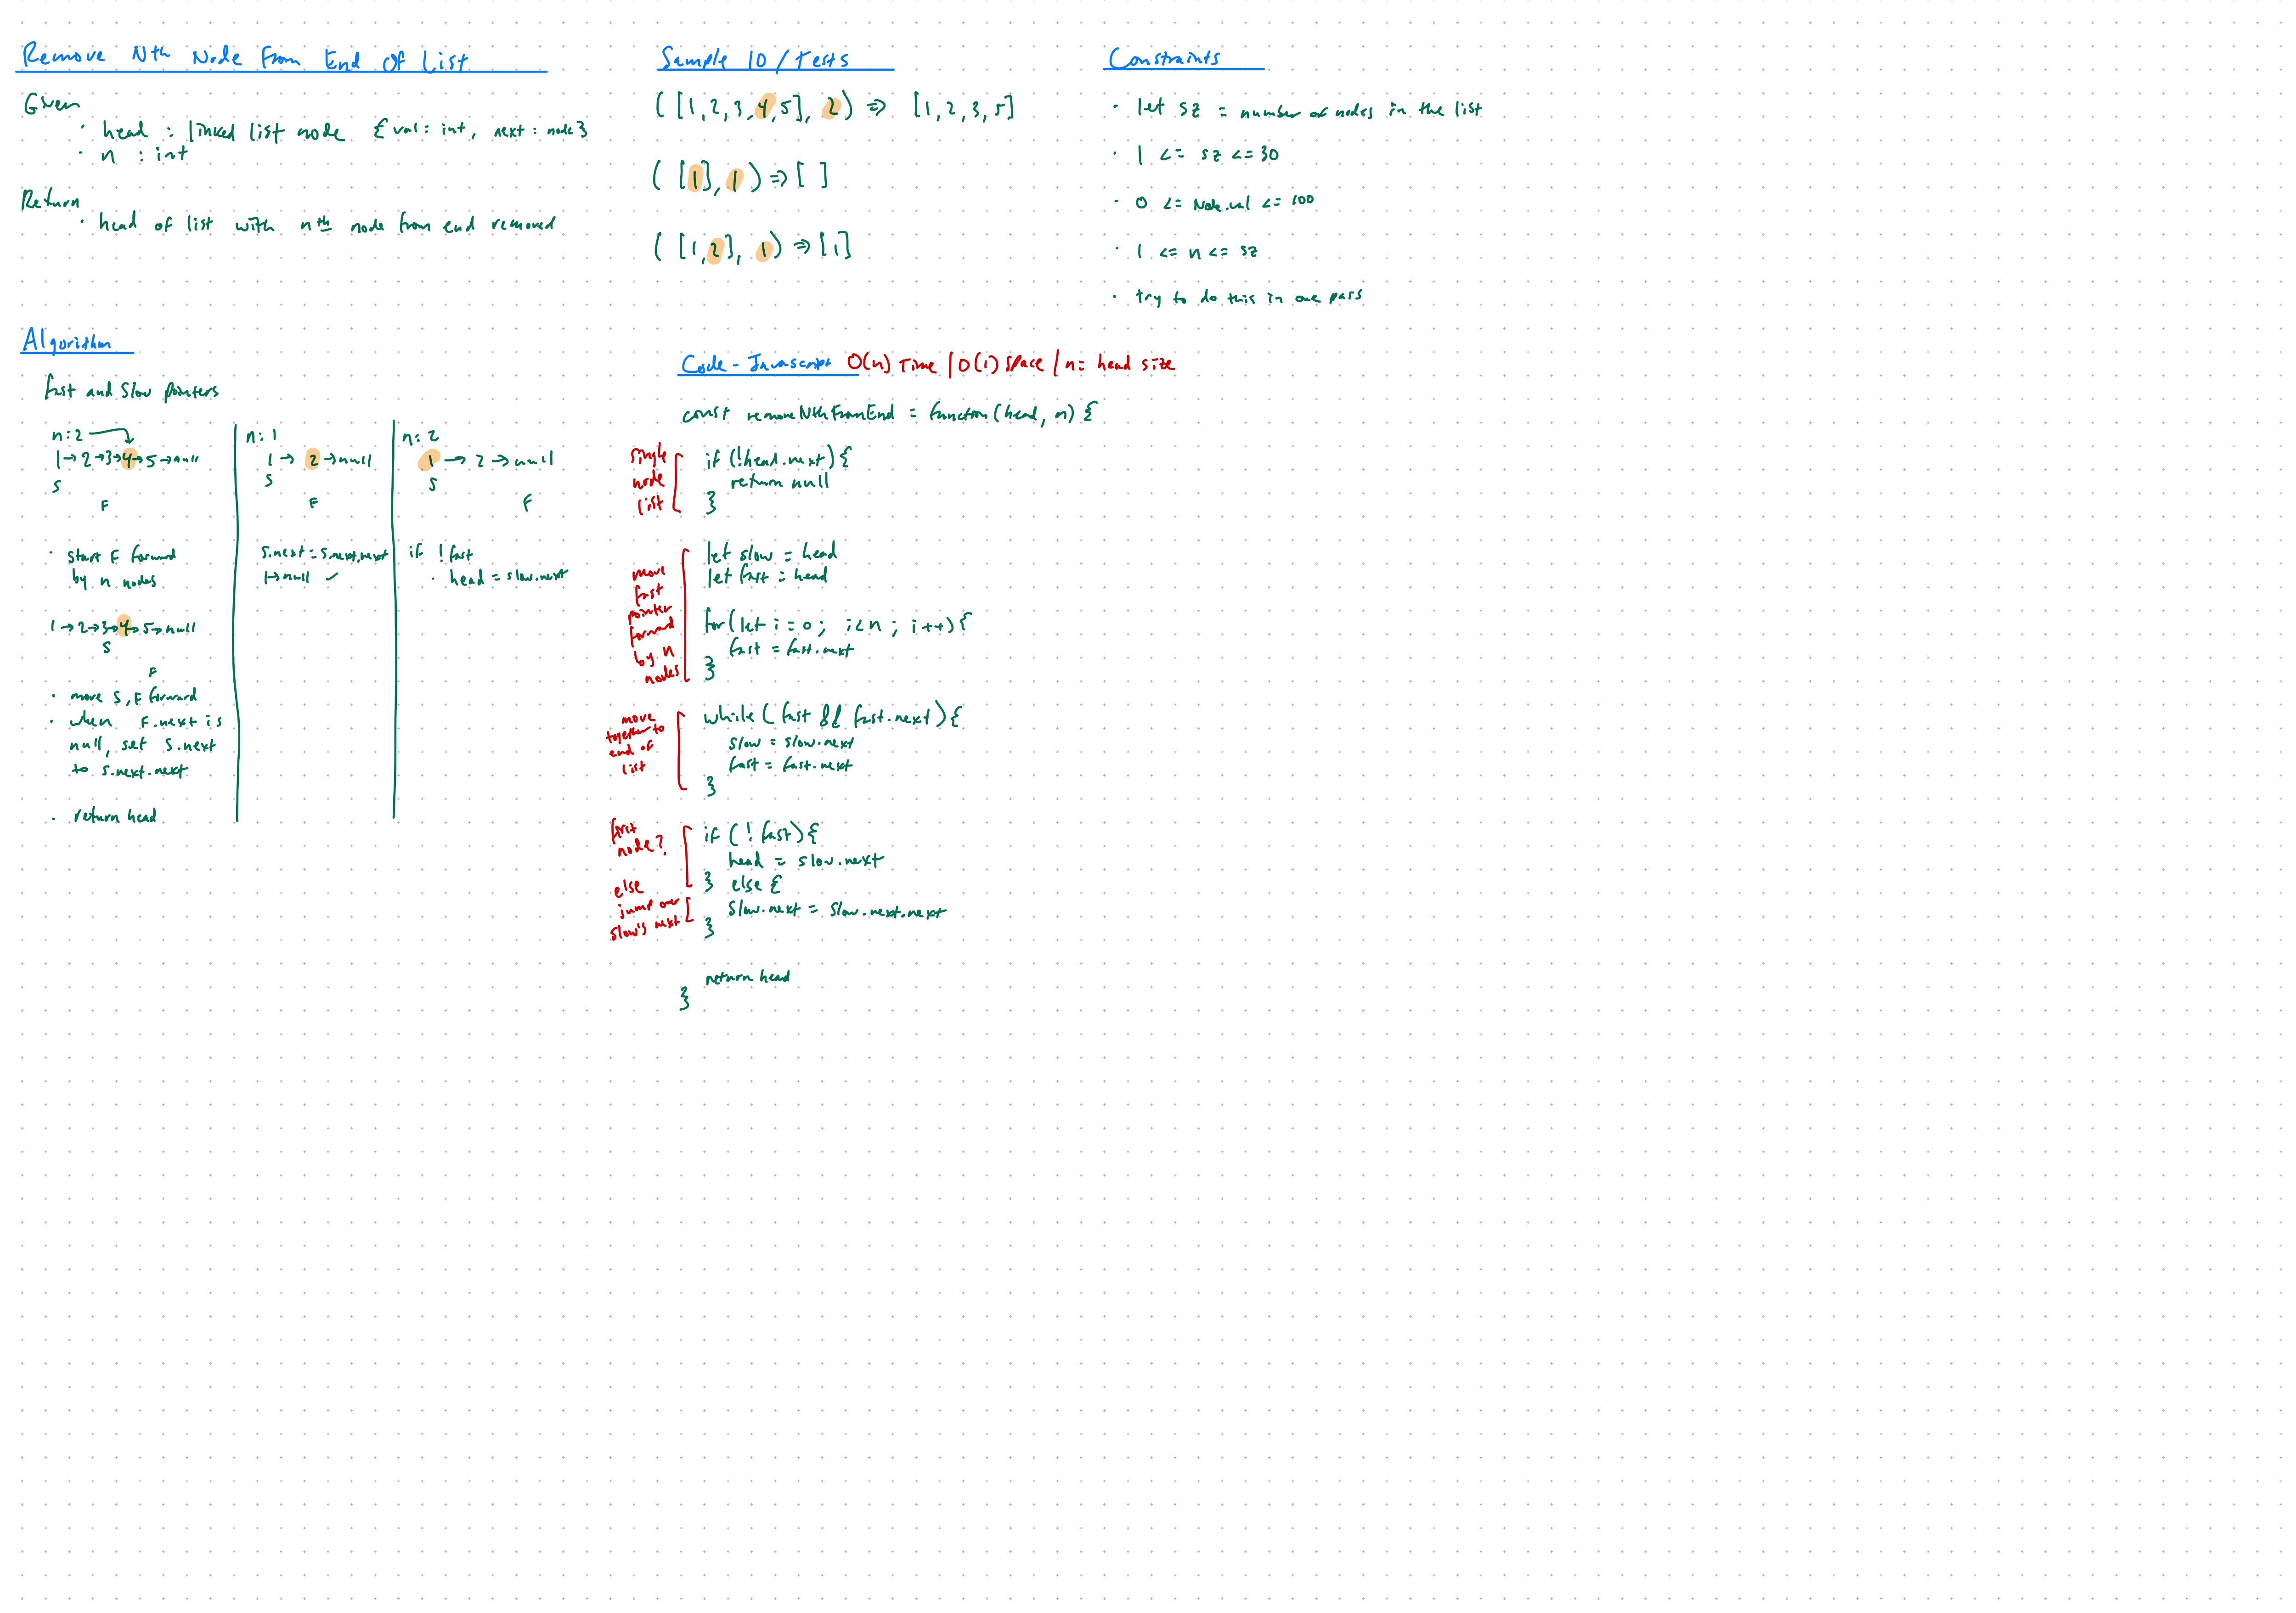 Remove Nth Node From End Of List
Given
· head : linked list node {val: int, next: node}
· n : int
Return
· head of list with nth node from end removed
Sample IO / Tests
([1,2,3,4,5], 2) => [1,2,3,5]
([1], 1) => [ ]
([1,2], 1) => [1]
Constraints
· let sz = number of nodes in the list
· 1 <= sz <= 30
· 0 <= Node.val <= 100
· 1 <= n <= sz
· try to do this in one pass
Algorithm
fast and slow pointers
n: 2
1→2→3→4→5→null
S
F
· start F forward
by n nodes
1→2→3→4→5→null
S
F
· move S, F forward
· when F.next is
null, set S.next
to S.next.next
· return head
n: 1
1→ 2 →null
S
F
S.next = S.next.next
1→null ✓
n: 2
1 → 2 → null
S
F
if !fast
· head = slow.next
Code - Javascript O(n) Time / O(1) Space / n = head size
const removeNthFromEnd = function(head, n) {
single
node
list
if (!head.next) {
return null
}
move
fast
pointer
forward
by n
nodes
let slow = head
let fast = head
for(let i = 0; i < n; i++) {
fast = fast.next
}
move
together to
end of
list
while (fast && fast.next) {
slow = slow.next
fast = fast.next
}
first
node?
else
jump over
slow's next
if (!fast) {
head = slow.next
} else {
slow.next = slow.next.next
}
return head
}